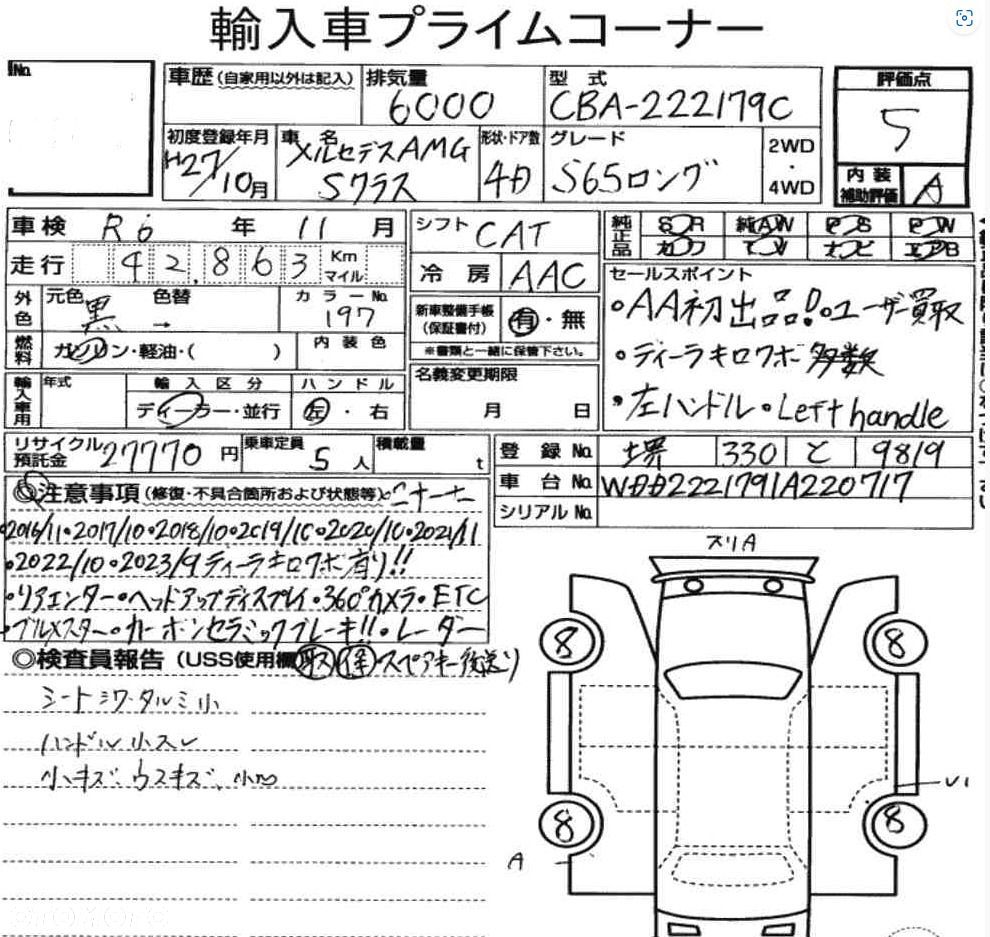 輸入車プライムコーナー
No.
車歴(自家用以外は記入)
排気量 6000
型式 CBA-222179C
評価点 5
初度登録年月 H27/10月
車名 メルセデスAMG Sクラス
形状・ドア数 4D
グレード S65ロング
2WD・4WD
内装補助評価 A
車検 R6年 11月
シフト CAT
純正品 SR 純AW PS PW
カワ TV ナビ エアB
走行 42,863 Km マイル
冷房 AAC
セールスポイント
・AA初出品!・ユーザー買取
・ディーラキロクボ多数
・左ハンドル・Left handle
外色 元色 黒 色替 → カラーNo. 197
新車整備手帳(保証書付) 有・無
※書類と一緒に保管下さい。
燃料 ガソリン・軽油・( )
内装色
名義変更期限 月 日
輸入車用 年式
輸入区分 ディーラー・並行
ハンドル 左・右
リサイクル預託金 27770円
乗車定員 5人
積載量 t
登録No. 堺 330 と 9819
車台No. WDD2221791A220717
シリアルNo.
◎注意事項(修復・不具合箇所および状態等)
・2016/11・2017/10・2018/10・2019/10・2020/10・2021/11
・2022/10・2023/9ディーラキロクボ有り!!
・リアエンター・ヘッドアップディスプレイ・360°カメラ・ETC
・ブルメスター・カーボンセラミックブレーキ!!・レーダー
◎検査員報告(USS使用欄 取 保 スペアキー後送り
シートシワ・タルミ小
ハンドル小スレ
小キズ、ウスキズ、小凹
スリA
8
8
8
8
U1
A